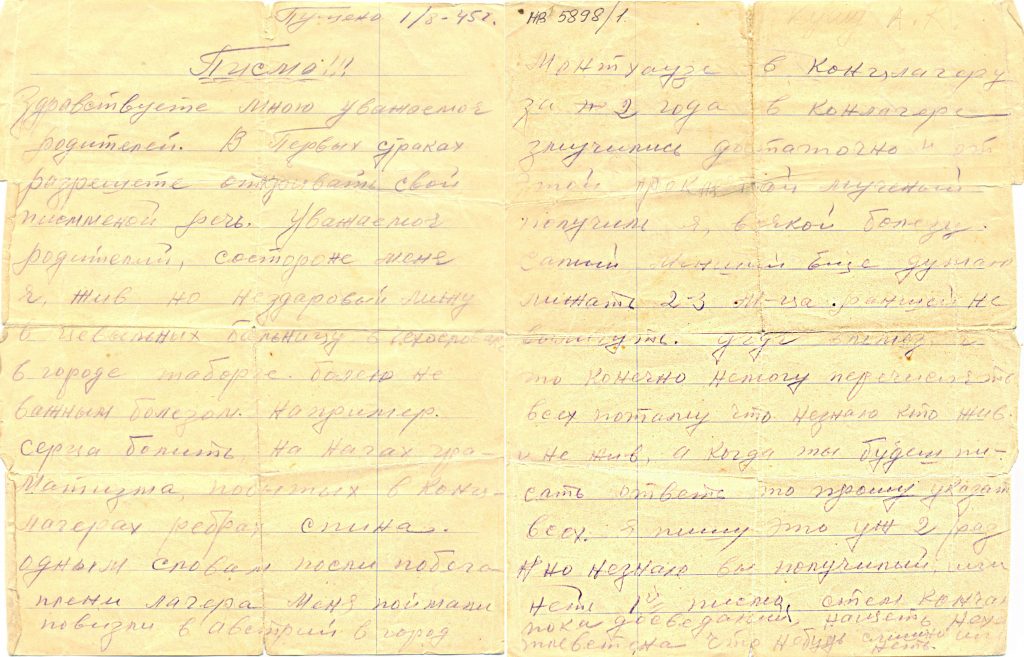 Пущено 1/8-45г.
Писмо!!!
Здравствуете мною уважаемое
родителей. В первых страках
разрешете открывать свой
писменой речь. Уважаемое
родителий, состороне меня
я, жив но нездаровый лижу
в больницу в
в городе таборе. болею не
важным болезам. Например.
серца болить, на нагах гра-
матизма, побытых в конц-
лагерах ребрах спина.
одным словам посли побега
плени лагера меня поймали
повизли в австрий в город
НВ 5898/1.
Мантхаузе в концлагеру
за 2 года в конлагере
змучились достаточно и от
этой проклятай мучений
получил я, всякой болезу.
Самый Меньший бище думаю
лижать 2-3 м-ца. раншей не
выпишуть.
то конечно немогу перечислять
всех потаму что незнаю кто жив
и не жив, а когда ты будеш пи-
сать ответь то прошу указат
всех. Я пишу это уж 2 раз
но незнаю вы получилий, или
неть 1ый писма, стем кончаю
пока досведаний,
что небудь слишно или неть.